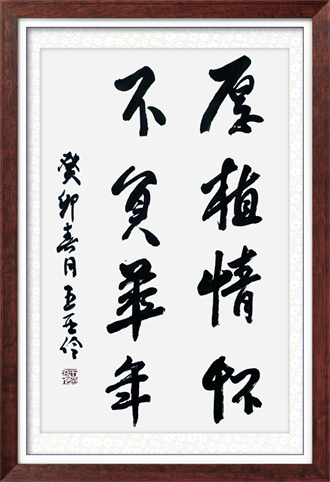 厚植情怀
不负华年
癸卯春月王